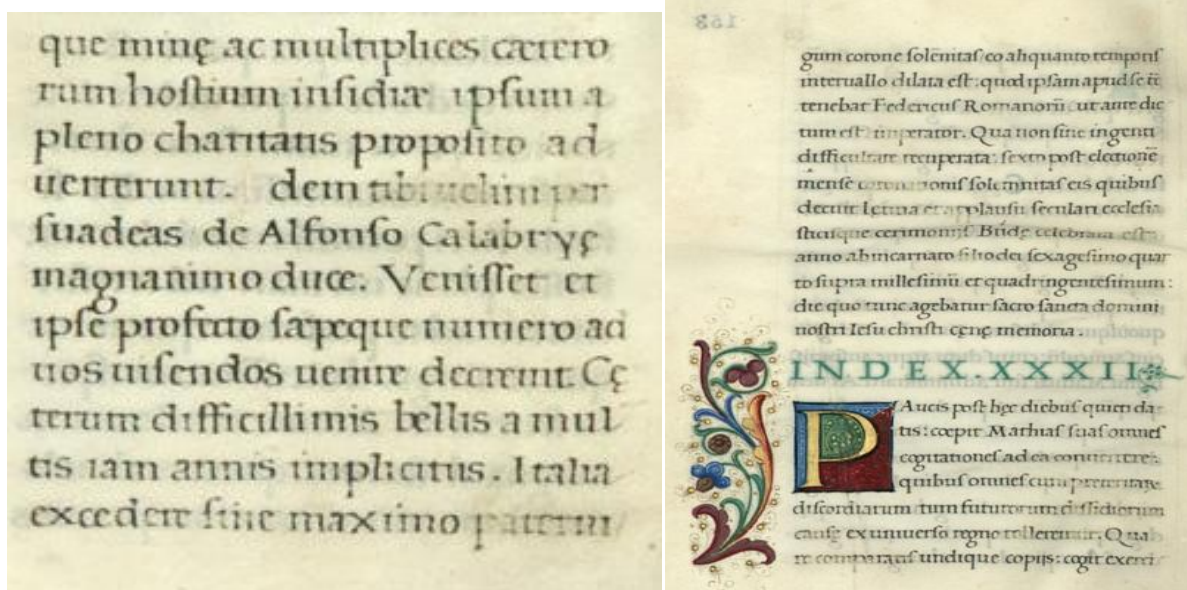 que minę ac multiplices cætero
rum hostium insidiæ ipsum a
pleno charitatis proposito ad
uerterunt. dem tibi uelim per
suadeas de Alfonso Calabryę
magnanimo duce. Venisset et
ipse profecto sæpeque numero ad
uos uisendos uenire decreuit. Cę
terum difficillimis bellis a mul
tis iam annis implicitus. Italia
excedere sine maximo paterni
153
gum corone solēnitas eo aliquanto temporis
interuallo dilata est: quod ipsam apud se tē
tenebat Federicus Romanorū ut ante dic
tum est imperator. Qua non sine ingenti
difficultate recuperata: sexto post electionē
mense coronationis solemnitas eis quibus
decuit lętitia et applausu seculari ecclesia
sticisque cerimoniis Budę celebrata est
anno ab incarnato filio dei sexagesimo quar
to supra millesimū et quadringentesimum:
die quo tunc agebatur sacro sancta domini
nostri Iesu christi cęnę memoria.
INDEX.XXXII
PAucis post hęc diebus quieti da
tis: cœpit Mathias suas omnes
cogitationes ad ea conuertere:
quibus omnes cum preteritarū
discordiarum tum futurorum dissidiorum
causę ex uniuerso regno tollerentur. Qua
re comparatis undique copiis: cogit exerci